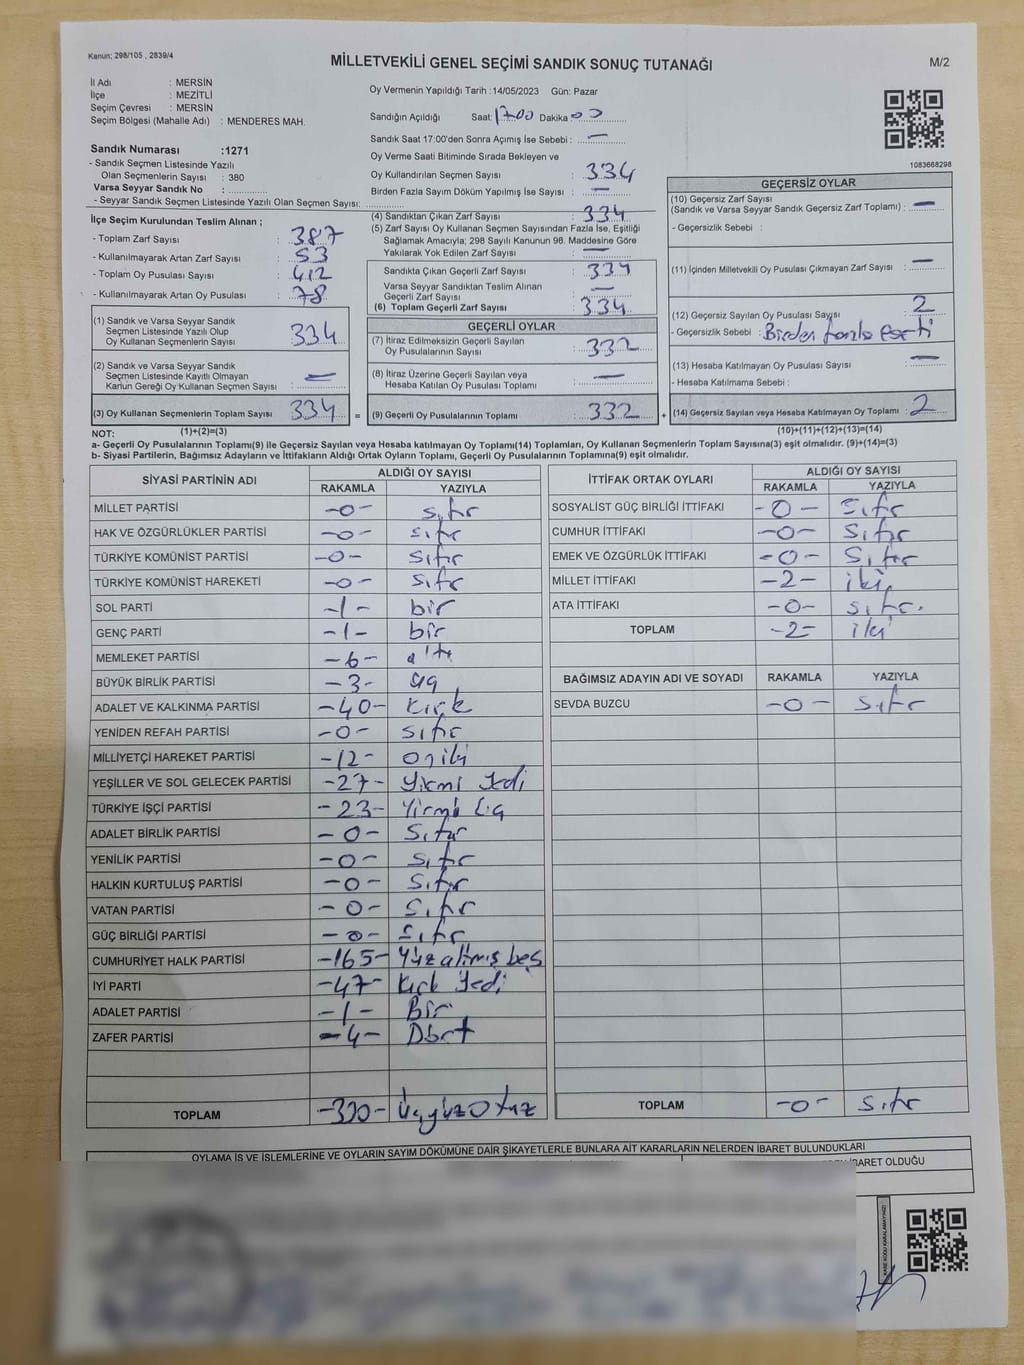 Kanun; 298/105 , 2839/4
MİLLETVEKİLİ GENEL SEÇİMİ SANDIK SONUÇ TUTANAĞI
M/2
İl Adı : MERSİN
İlçe : MEZİTLİ
Seçim Çevresi : MERSİN
Seçim Bölgesi (Mahalle Adı) : MENDERES MAH.
Sandık Numarası :1271
- Sandık Seçmen Listesinde Yazılı
Olan Seçmenlerin Sayısı : 380
Varsa Seyyar Sandık No :
- Seyyar Sandık Seçmen Listesinde Yazılı Olan Seçmen Sayısı:
Oy Vermenin Yapıldığı Tarih :14/05/2023 Gün: Pazar
Sandığın Açıldığı Saat: 1700 Dakika: 00
Sandık Saat 17:00'den Sonra Açımış İse Sebebi : —
Oy Verme Saati Bitiminde Sırada Bekleyen ve
Oy Kullandırılan Seçmen Sayısı : 334
Birden Fazla Sayım Döküm Yapılmış İse Sayısı : —
1083668298
İlçe Seçim Kurulundan Teslim Alınan ;
- Toplam Zarf Sayısı : 387
- Kullanılmayarak Artan Zarf Sayısı : 53
- Toplam Oy Pusulası Sayısı : 412
- Kullanılmayarak Artan Oy Pusulası : 78
(1) Sandık ve Varsa Seyyar Sandık
Seçmen Listesinde Yazılı Olup
Oy Kullanan Seçmenlerin Sayısı : 334
(2) Sandık ve Varsa Seyyar Sandık
Seçmen Listesinde Kayıtlı Olmayan
Kanun Gereği Oy Kullanan Seçmen Sayısı : —
(3) Oy Kullanan Seçmenlerin Toplam Sayısı 334 =
(4) Sandıktan Çıkan Zarf Sayısı : 334
(5) Zarf Sayısı Oy Kullanan Seçmen Sayısından Fazla İse, Eşitliği
Sağlamak Amacıyla; 298 Sayılı Kanunun 98. Maddesine Göre
Yakılarak Yok Edilen Zarf Sayısı : —
Sandıkta Çıkan Geçerli Zarf Sayısı : 334
Varsa Seyyar Sandıktan Teslim Alınan
Geçerli Zarf Sayısı : —
(6) Toplam Geçerli Zarf Sayısı : 334
GEÇERLİ OYLAR
(7) İtiraz Edilmeksizin Geçerli Sayılan
Oy Pusulalarının Sayısı : 332
(8) İtiraz Üzerine Geçerli Sayılan veya
Hesaba Katılan Oy Pusulası Toplamı : —
(9) Geçerli Oy Pusulalarının Toplamı : 332 +
GEÇERSİZ OYLAR
(10) Geçersiz Zarf Sayısı
(Sandık ve Varsa Seyyar Sandık Geçersiz Zarf Toplamı) : —
- Geçersizlik Sebebi :
(11) İçinden Milletvekili Oy Pusulası Çıkmayan Zarf Sayısı : —
(12) Geçersiz Sayılan Oy Pusulası Sayısı : 2
- Geçersizlik Sebebi : Birden fazla
(13) Hesaba Katılmayan Oy Pusulası Sayısı : —
- Hesaba Katılmama Sebebi :
(14) Geçersiz Sayılan veya Hesaba Katılmayan Oy Toplamı : 2
NOT: (1)+(2)=(3) (10)+(11)+(12)+(13)=(14)
a- Geçerli Oy Pusulalarının Toplamı(9) ile Geçersiz Sayılan veya Hesaba katılmayan Oy Toplamı(14) Toplamları, Oy Kullanan Seçmenlerin Toplam Sayısına(3) eşit olmalıdır. (9)+(14)=(3)
b- Siyasi Partilerin, Bağımsız Adayların ve İttifakların Aldığı Ortak Oyların Toplamı, Geçerli Oy Pusulalarının Toplamına(9) eşit olmalıdır.
SİYASİ PARTİNİN ADI ALDIĞI OY SAYISI
RAKAMLA YAZIYLA
MİLLET PARTİSİ -0- sıfır
HAK VE ÖZGÜRLÜKLER PARTİSİ -0- sıfır
TÜRKİYE KOMÜNİST PARTİSİ -0- sıfır
TÜRKİYE KOMÜNİST HAREKETİ -0- sıfır
SOL PARTİ -1- bir
GENÇ PARTİ -1- bir
MEMLEKET PARTİSİ -6- altı
BÜYÜK BİRLİK PARTİSİ -3- üç
ADALET VE KALKINMA PARTİSİ -40- Kırk
YENİDEN REFAH PARTİSİ -0- sıfır
MİLLİYETÇİ HAREKET PARTİSİ -12- oniki
YEŞİLLER VE SOL GELECEK PARTİSİ -27- Yirmi Yedi
TÜRKİYE İŞÇİ PARTİSİ -23- Yirmi üç
ADALET BİRLİK PARTİSİ -0- Sıfır
YENİLİK PARTİSİ -0- sıfır
HALKIN KURTULUŞ PARTİSİ -0- Sıfır
VATAN PARTİSİ -0- Sıfır
GÜÇ BİRLİĞİ PARTİSİ -0- sıfır
CUMHURİYET HALK PARTİSİ -165- Yüzaltmış beş
İYİ PARTİ -47- Kırk Yedi
ADALET PARTİSİ -1- Bir
ZAFER PARTİSİ -4- Dört
TOPLAM -330- Üçyüz Otuz
İTTİFAK ORTAK OYLARI ALDIĞI OY SAYISI
RAKAMLA YAZIYLA
SOSYALİST GÜÇ BİRLİĞİ İTTİFAKI -0- Sıfır
CUMHUR İTTİFAKI -0- Sıfır
EMEK VE ÖZGÜRLÜK İTTİFAKI -0- Sıfır
MİLLET İTTİFAKI -2- iki
ATA İTTİFAKI -0- sıfır.
TOPLAM -2- iki
BAĞIMSIZ ADAYIN ADI VE SOYADI RAKAMLA YAZIYLA
SEVDA BUZCU -0- sıfır
TOPLAM -0- sıfır
OYLAMA İŞ VE İŞLEMLERİNE VE OYLARIN SAYIM DÖKÜMÜNE DAİR ŞİKAYETLERLE BUNLARA AİT KARARLARIN NELERDEN İBARET BULUNDUKLARI
İBARET OLDUĞU
KARE KODU KARALAMAYINIZ!